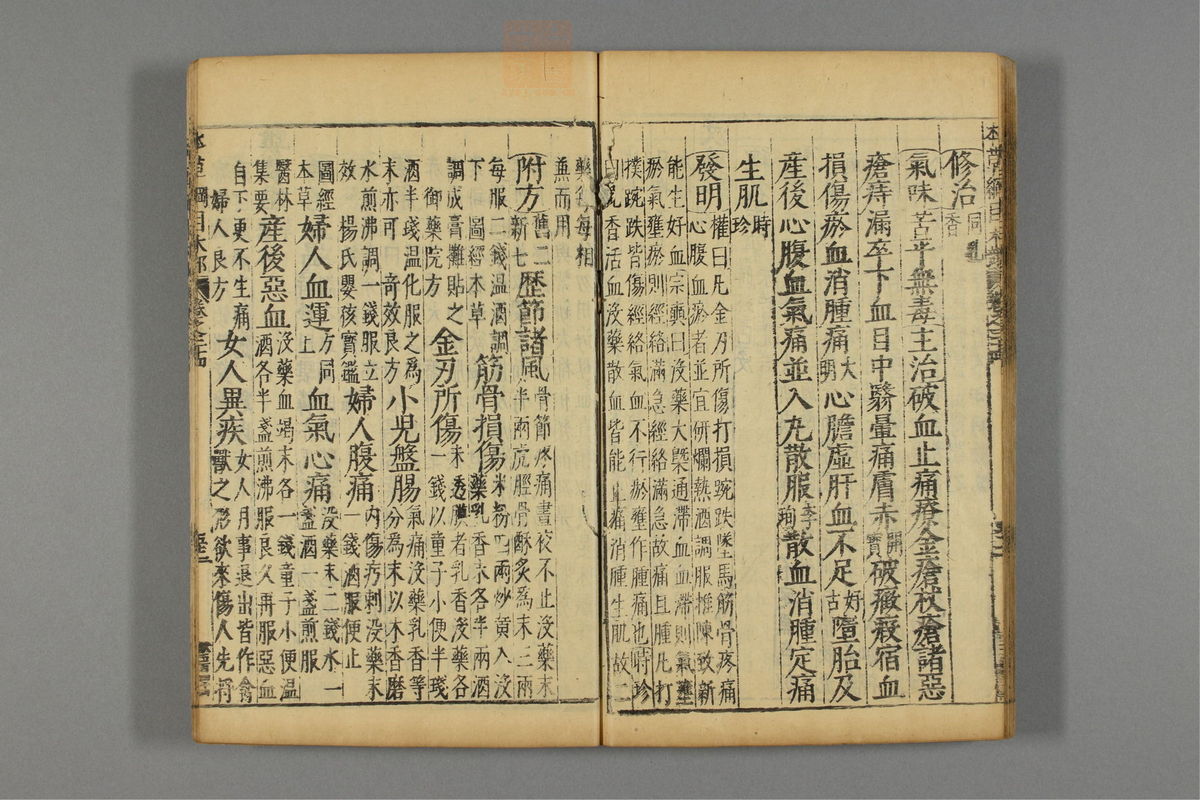 修治同乳香
氣味苦平無毒主治破血止痛療金瘡杖瘡諸惡
瘡痔漏卒下血目中翳暈痛膚赤開寶破癥瘕宿血
損傷瘀血消腫痛大明心膽虛肝血不足好古墮胎及
産後心腹血氣痛並入丸散服李珣散血消腫定痛
生肌時珍
發明權曰凡金刃所傷打損踠跌墜馬筋骨疼痛
心腹血瘀者並宜研爛熱酒調服推陳致新
能生好血宗奭曰没藥大槩通滯血血滯則氣壅
瘀氣壅瘀則經絡滿急經絡滿急故痛且腫凡打
撲踠跌皆傷經絡氣血不行瘀壅作腫痛也時珍
曰乳香活血没藥散血皆能止痛消腫生肌故二
藥每每相
兼而用
附方舊二新七歷節諸風骨節疼痛晝夜不止没藥末
半兩虎脛骨酥炙爲末三兩
每服二錢温酒調
下圖經本草
筋骨損傷米粉四兩炒黄入没
藥乳香末各半兩酒
調成膏攤貼之
御藥院方
金刃所傷未透膜者乳香没藥各
一錢以童子小便半盞
酒半盞温化服之爲
末亦可奇效良方
小兒盤腸氣痛没藥乳香等
分為末以木香磨
水煎沸調一錢服立
效楊氏嬰孩寶鑑
婦人腹痛内傷㽲刺没藥末
一錢酒服便止
圖經
本草
婦人血運方同上
血氣心痛没藥末二錢水一
盞酒一盞煎服
醫林
集要
産後惡血没藥血竭末各一錢童子小便温
酒各半盞煎沸服良久再服惡血
自下更不生痛
婦人良方
女人異疾女人月事退出皆作禽
獸之形欲來傷人先將